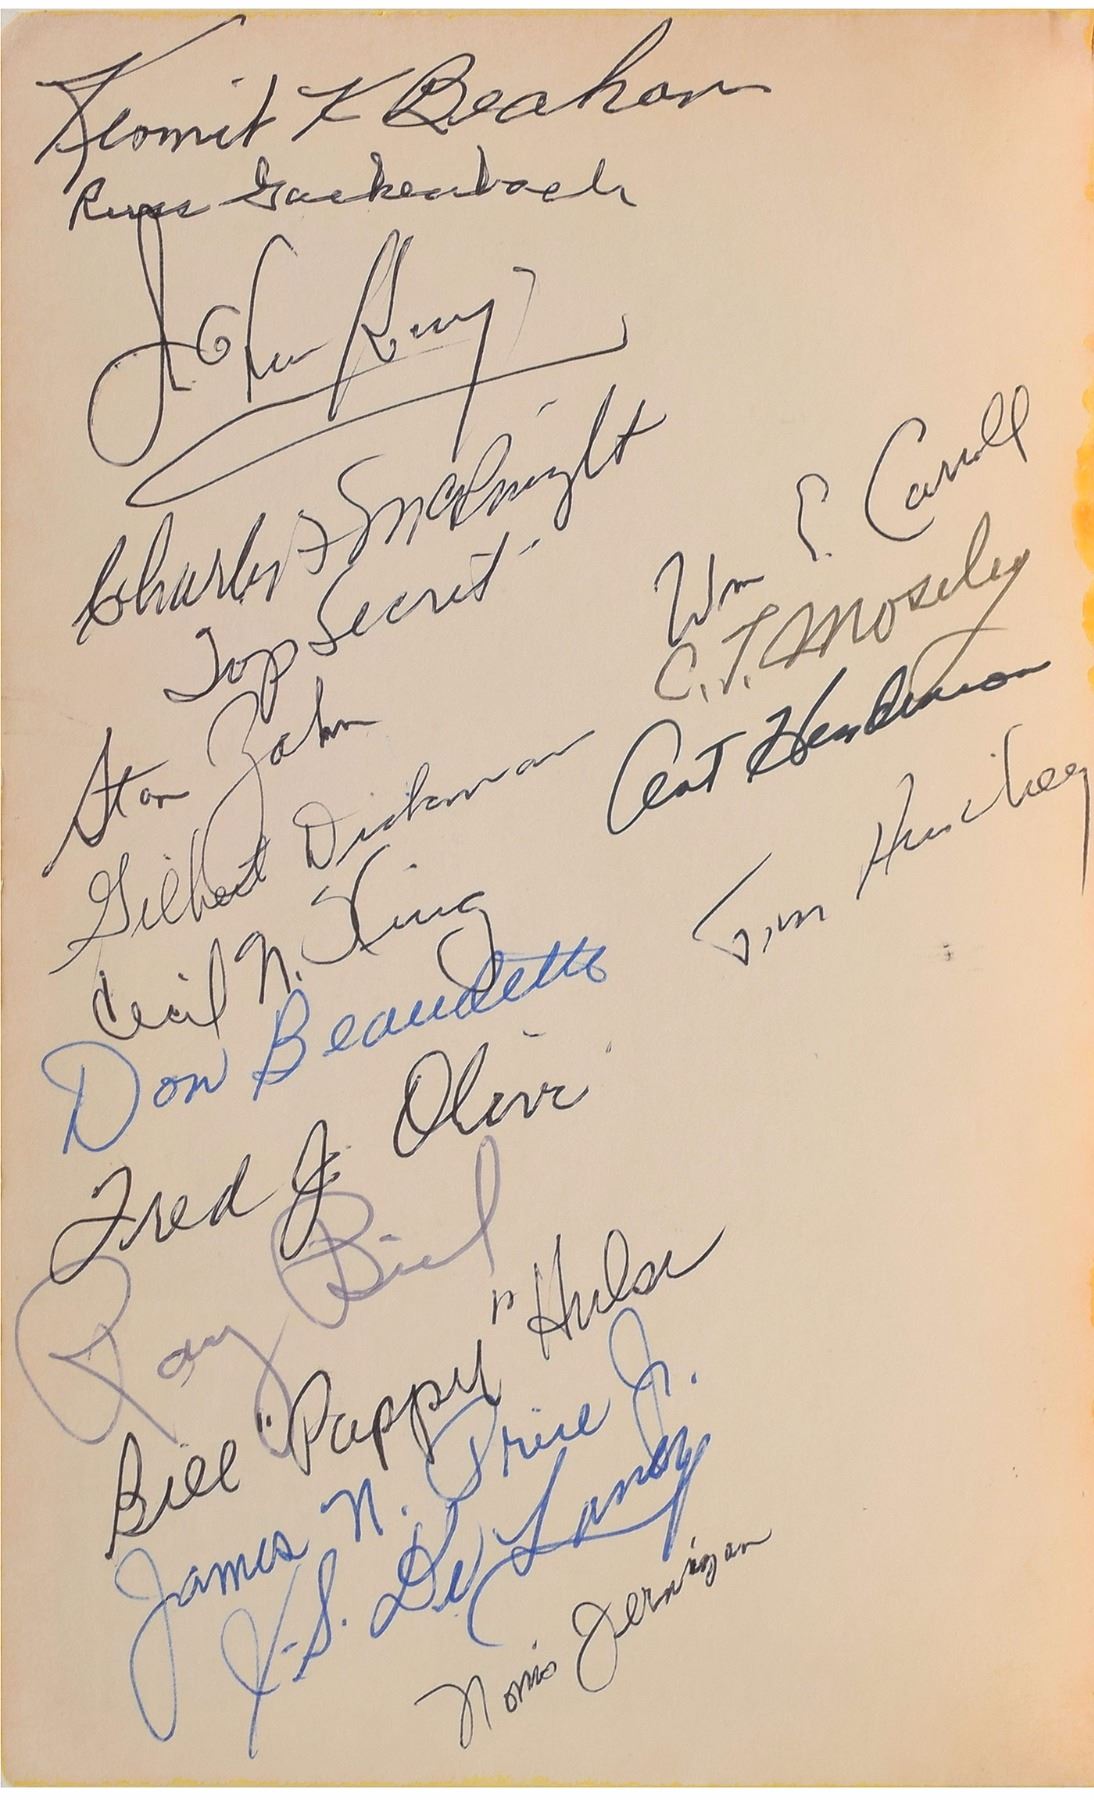 Kermit K Beahan
Russ Gackenbach
Charles McKnight
Top Secret
Stan Zahn
Gilbert Dickman
Cecil N. King
Don Beaudette
Fred J. Olivi
Ray Biel
Bill "Pappy" Hulse
James N. Price Jr.
K.S. De Lancy
Norris Jernigan
Wm E. Carroll
C.T. Moseley
Art Henderson
Tim